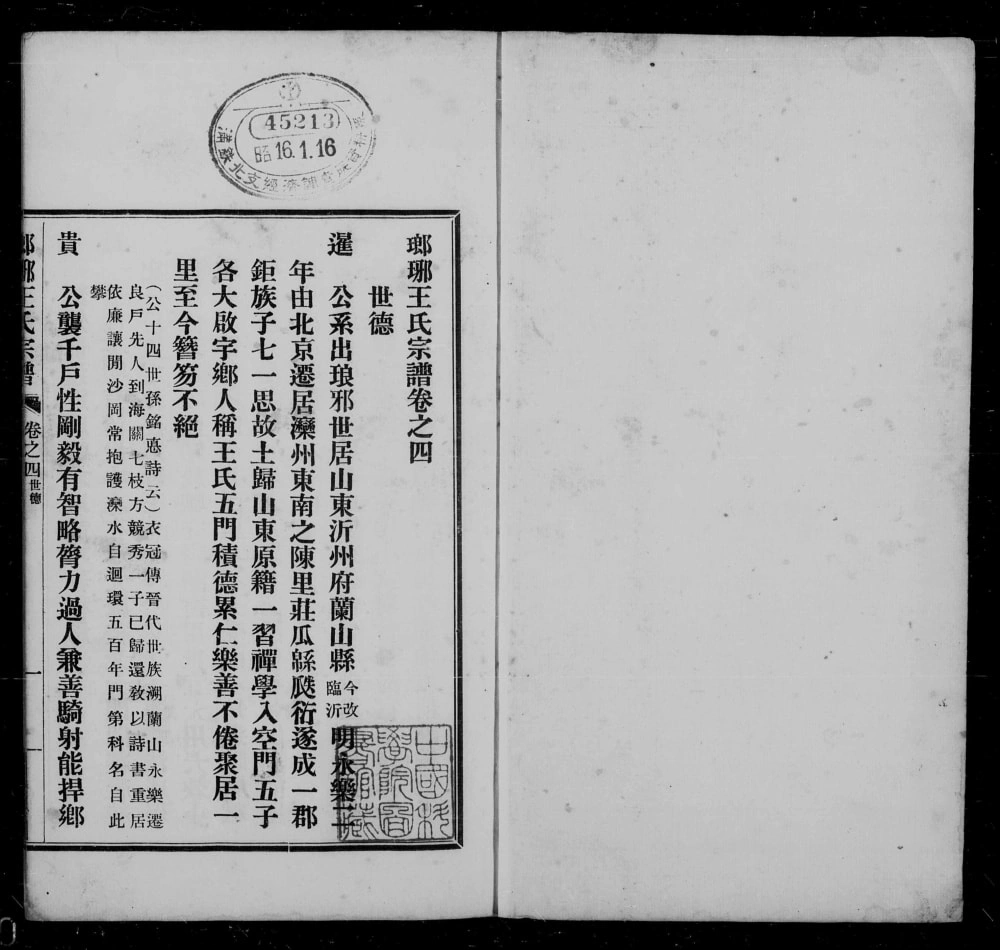 45213
昭16.1.16
瑯琊王氏宗譜卷之四
世德
暹 公系出琅邪世居山東沂州府蘭山縣今改臨沂明永樂二
年由北京遷居灤州東南之陳里莊瓜緜瓞衍遂成一郡
鉅族子七一思故土歸山東原籍一習禪學入空門五子
各大啟宇鄉人稱王氏五門積德累仁樂善不倦聚居一
里至今簪笏不絕
(公十四世孫銘慤詩云)衣冠傳晉代世族溯蘭山永樂遷
良戶先人到海關七枝方競秀一子已歸還教以詩書重居
依廉讓閒沙岡常抱護灤水自迴環五百年門第科名自此
攀
貴 公襲千戶性剛毅有智略膂力過人兼善騎射能捍鄉
瑯琊王氏宗譜 卷之四世德 一
中國科學院圖書館藏